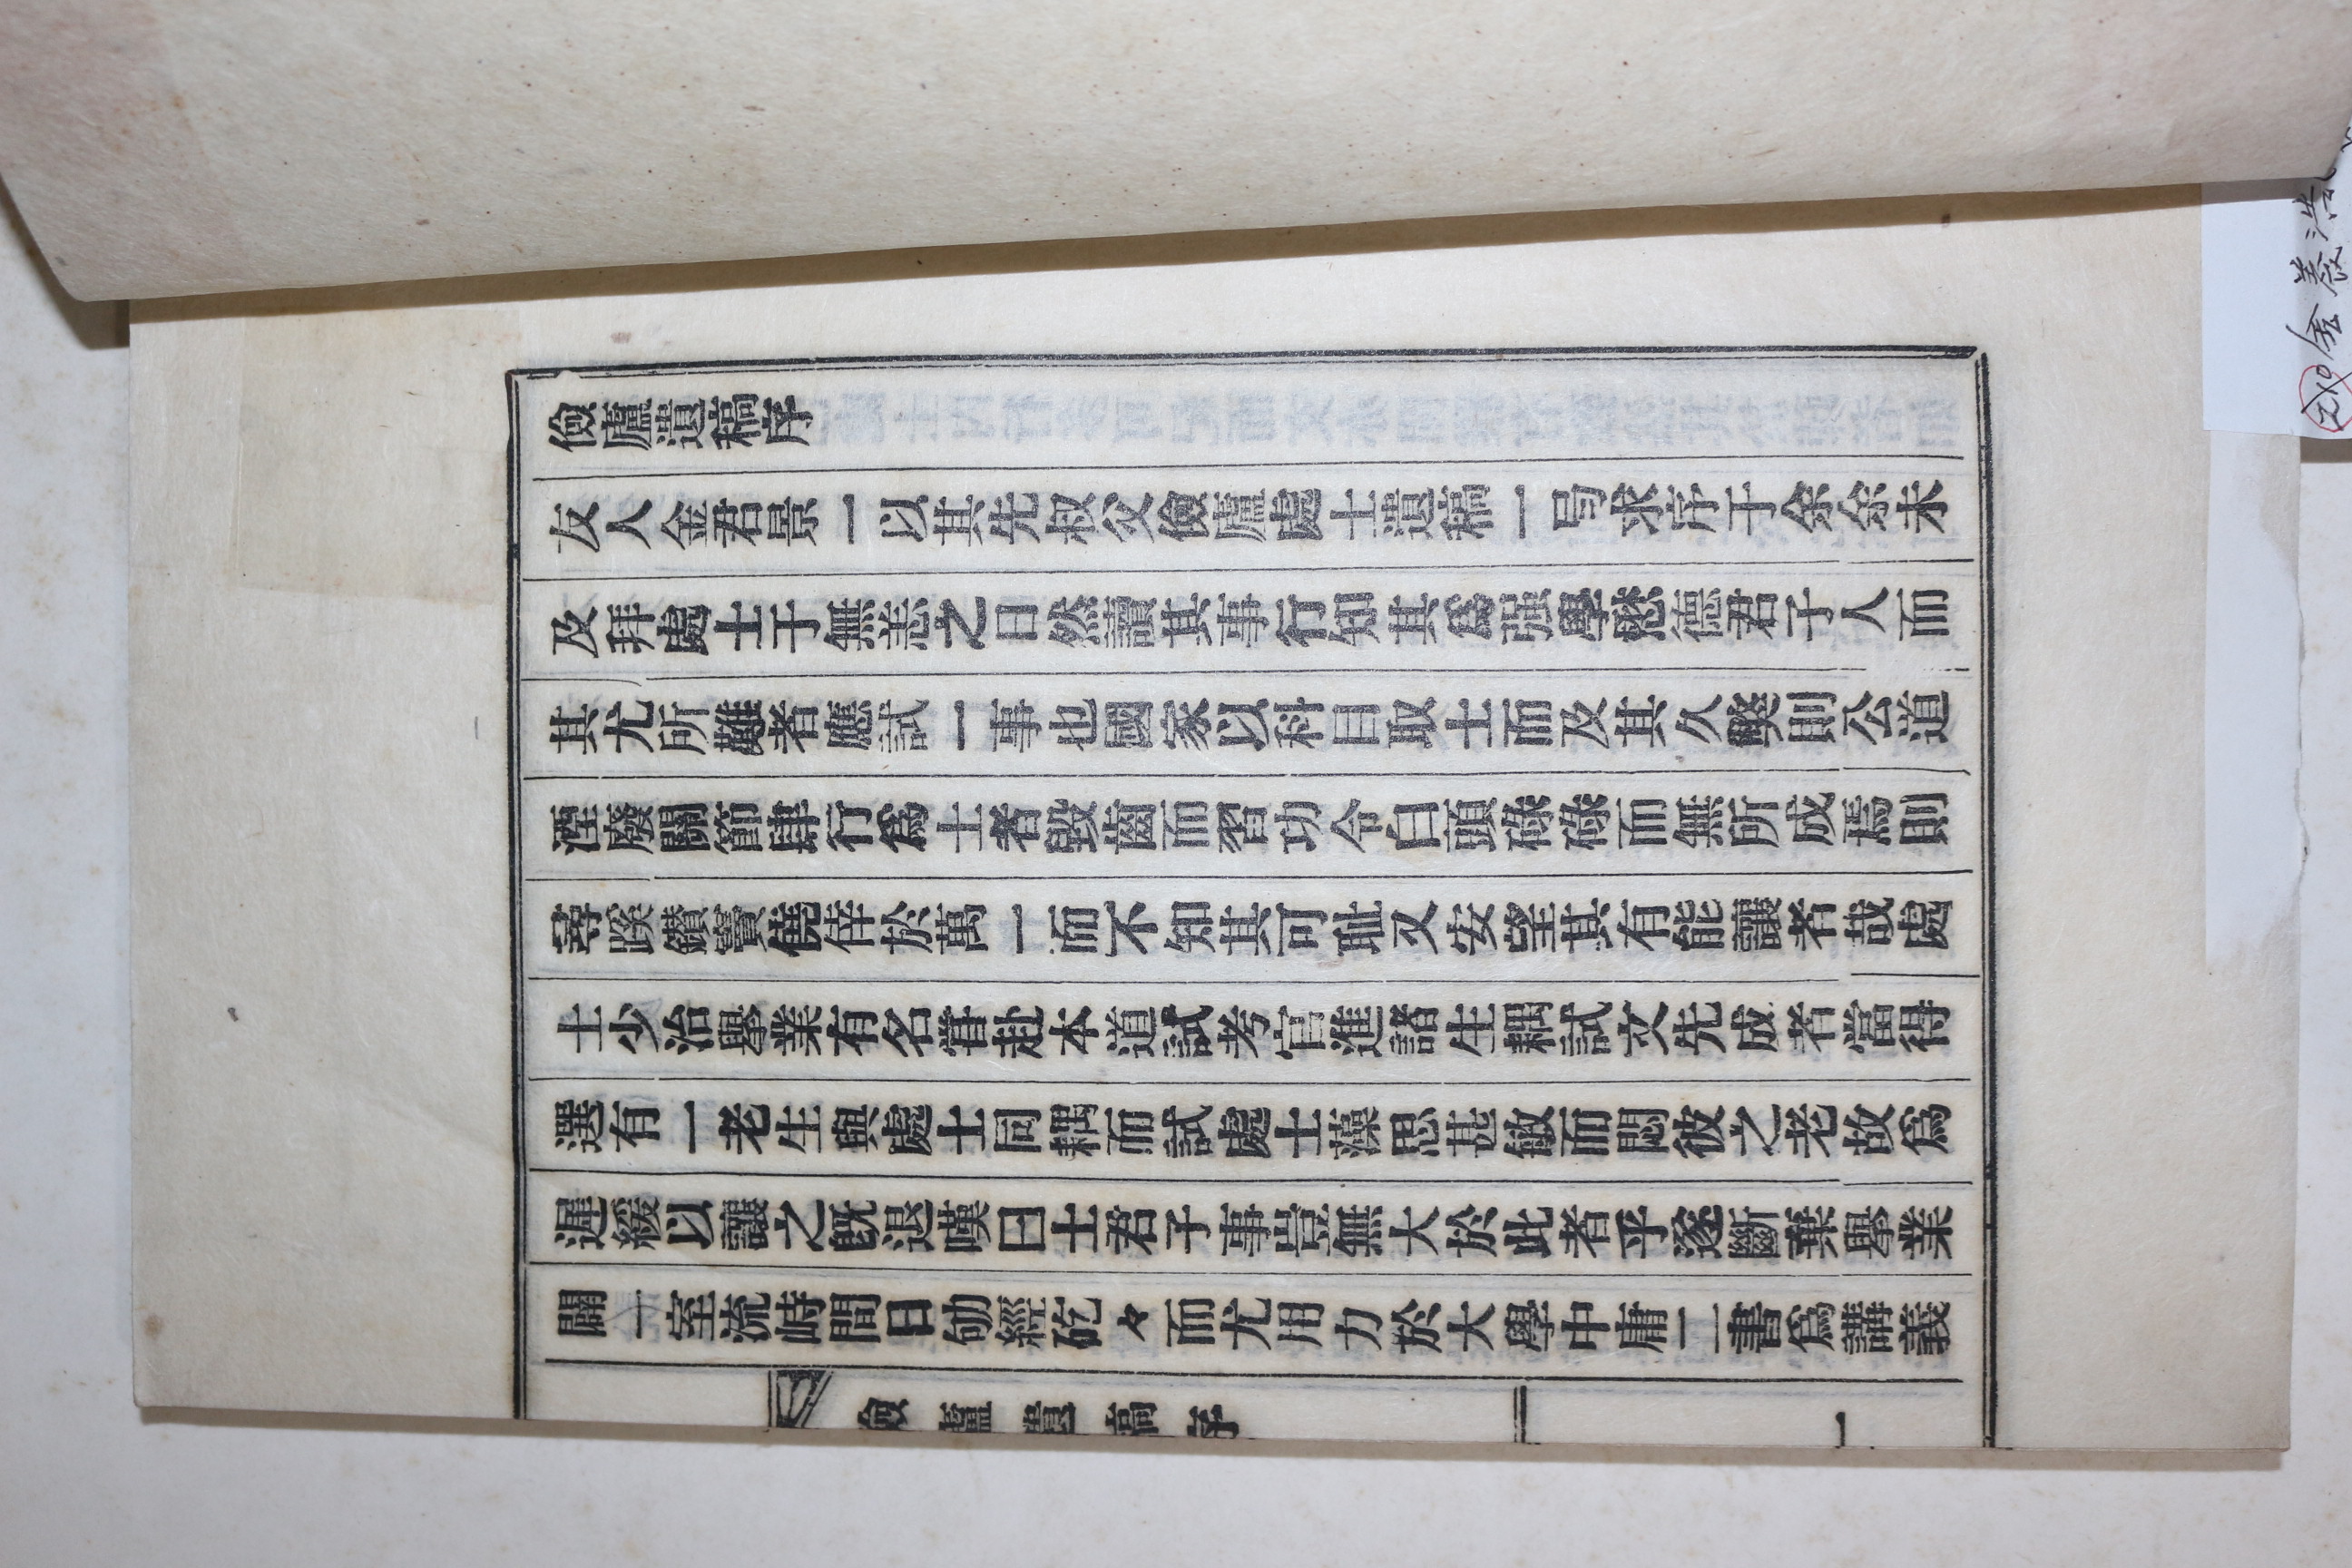 儉廬遺稿序
友人金君景一以其先叔父儉廬處士遺稿一局求序于余余未
及拜處士于無恙之日然讀其事行知其爲强學懋德君子人而
其尤所難者應試一事也國家以科目取士而及其久獘則公道
湮廢關節肆行爲士者毀齒而習功令白頭碌碌而無所成焉則
尋蹊鑽竇僥倖於萬一而不知其可耻又安望其有能讓者哉處
士少治擧業有名甞赴本道試考官進諸生耦試文先成者當得
選有一老生與處士同耦而試處士藻思甚敏而悶彼之老故爲
遲緩以讓之旣退嘆曰士君子事豈無大於此者乎遂斷棄擧業
闢一室流峙間日劬經矻々而尤用力於大學中庸二書爲講義
儉廬遺稿序
一
210 金養浩